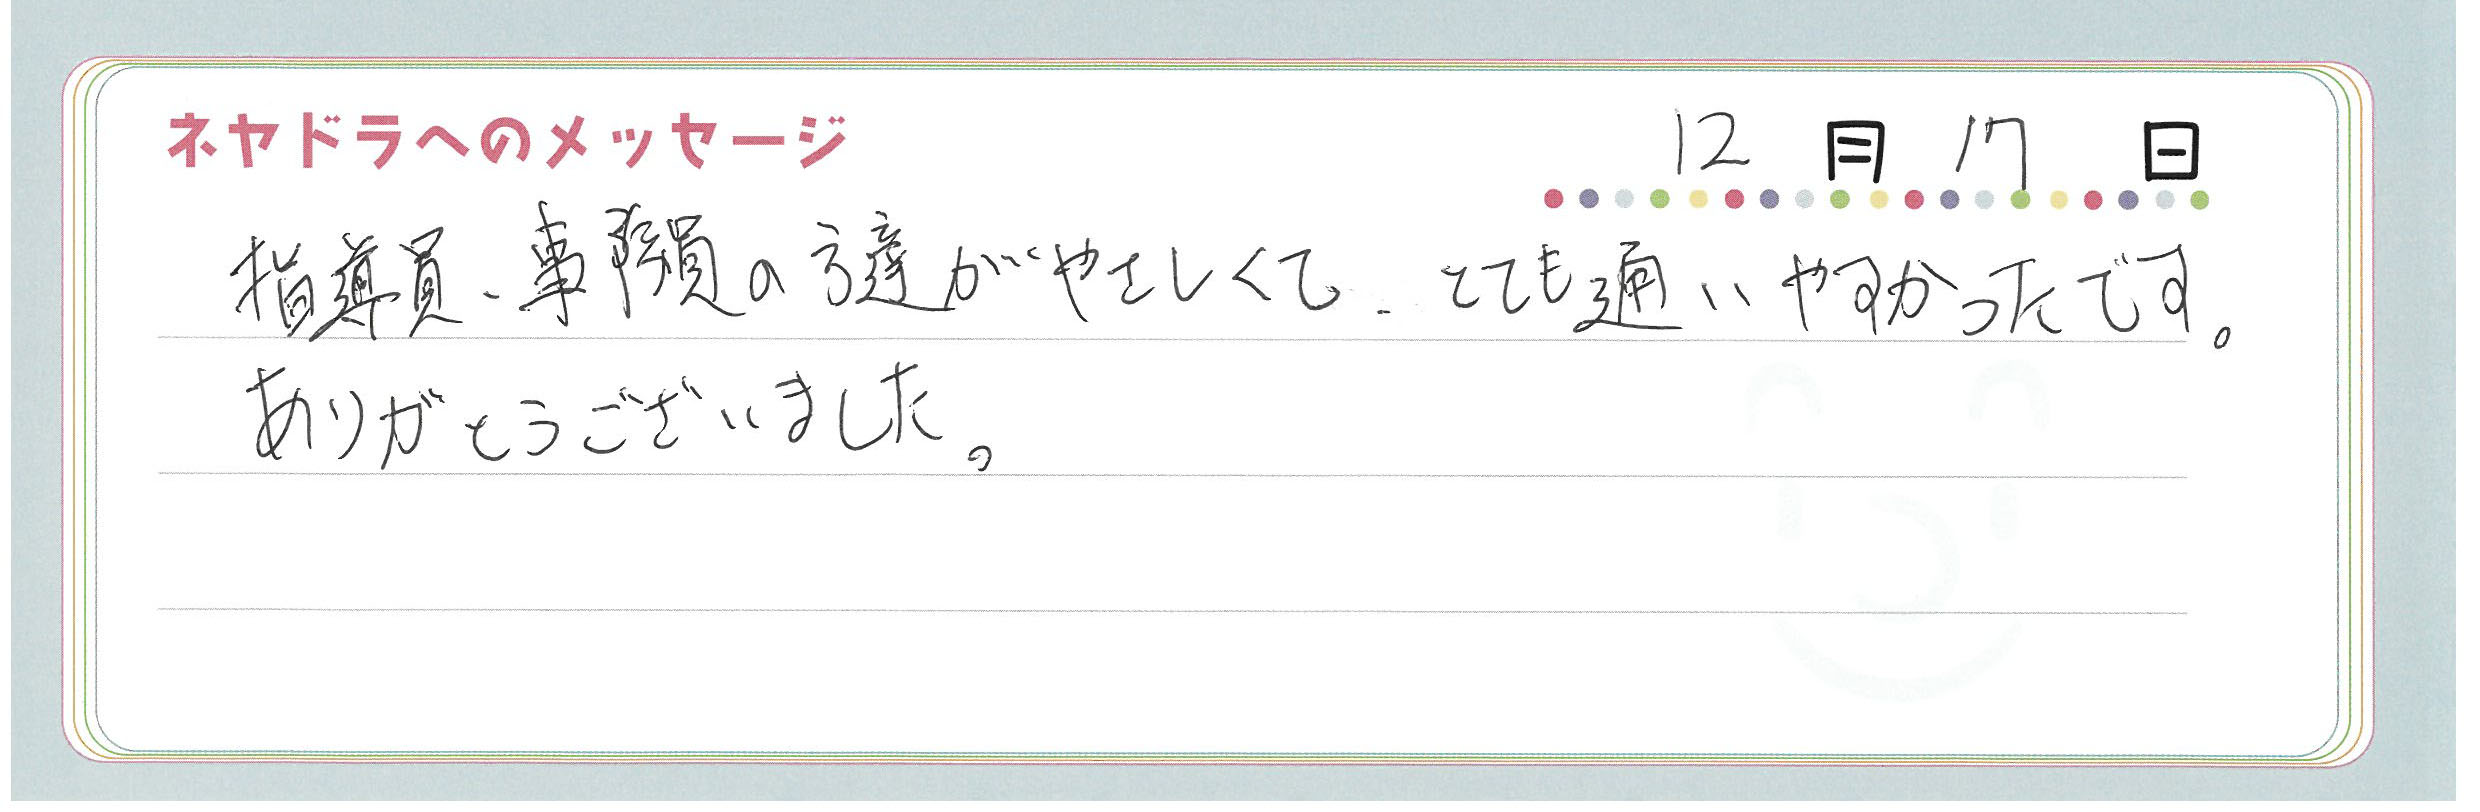 ネヤドラへのメッセージ
12月17日
指導員、事務員の方達がやさしくて、とても通いやすかったです。
ありがとうございました。